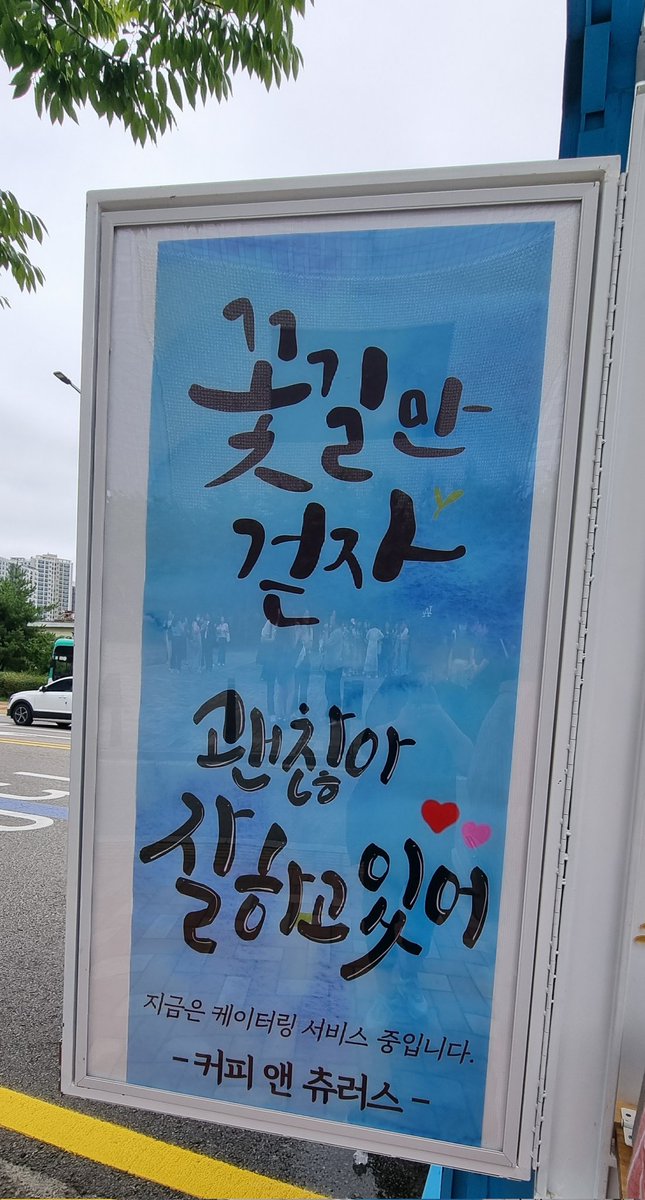 꽃길만
걷자
괜찮아
잘하고있어
지금은 케이터링 서비스 중입니다.
-커피 앤 츄러스-